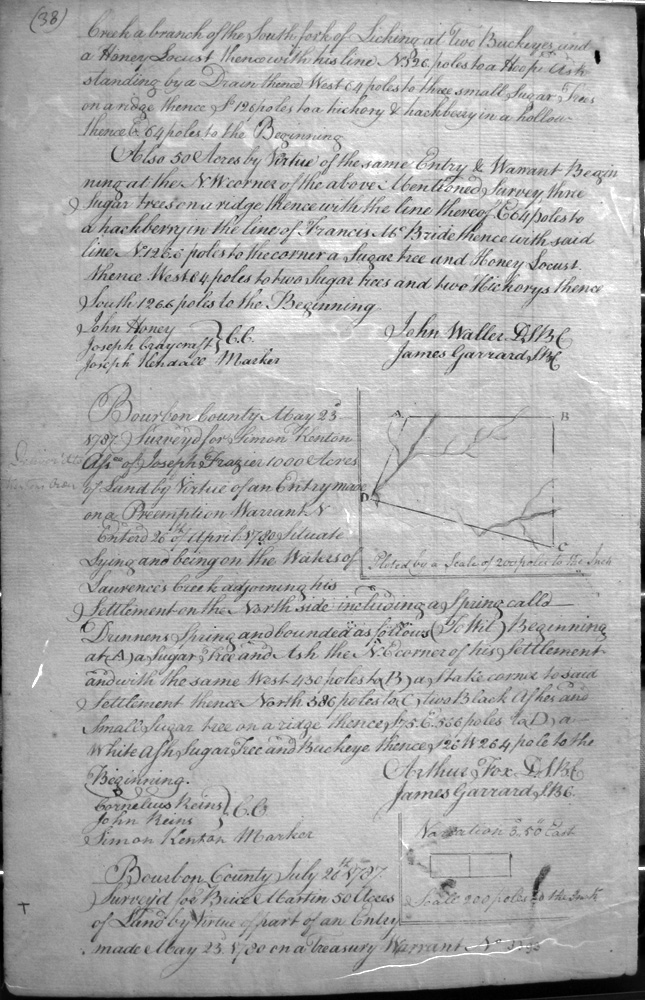 (38)
Creek a branch of the South fork of Licking at Two Buckeyes and
a Honey Locust thence with his line N 126 poles to a Hoop Ash
standing by a Drain thence West 64 poles to three small Sugar Trees
on a ridge thence S 126 poles to a hickory & hackberry in a hollow
thence E 64 poles to the Beginning
Also 50 Acres by Virtue of the same Entry & Warrant Begin
ning at the N W corner of the above Mentioned Survey three
Sugar trees on a ridge thence with the line thereof E 64 poles to
a hackberry in the line of Francis Mc Bride thence with said
line N 126 poles to the corner a Sugar tree and Honey Locust
thence West 64 poles to two Sugar trees and two Hickorys thence
South 126 poles to the Beginning
John Honey
Joseph Craycraft } C.C.
Joseph Kendale Marker
John Waller D.S.B.C
James Garrard S.B.C
Bourbon County May 23d
1787 Survey'd for Simon Kenton
Assee of Joseph Frazier 1000 Acres
of Land by Virtue of an Entry made
on a Preemption Warrant N
Enterd 26th of April 1780 Situate
Lying and being on the Waters of
Laurence's Creek adjoining his
Settlement on the North side including a Spring calld
Drunnens Spring and bounded as follows (To Wit) Beginning
at (A) a Sugar Tree and Ash the N. E corner of his Settlement
and with the same West 430 poles to (B) a Stake corner to said
Settlement thence North 386 poles to (C) two Black Ashes and
Small Sugar tree on a ridge thence S 75 E 566 poles to (D) a
White Ash Sugar Tree and Buckeye thence S 26 W 264 pole to the
Beginning.
Cornelius Keins
John Keins } C.C
Simon Kenton Marker
Arthur Fox D.S.B.C
James Garrard S.B.C.
A B
D
C
Ploted by a Scale of 200 poles to the Inch
Bourbon County July 20th 1787.
Survey'd for Bruce Martin 50 Acres
of Land by Virtue of part of an Entry
made May 23 1780 on a Treasury Warrant No
Variation 3.50 East
Scale 200 poles to the Inch